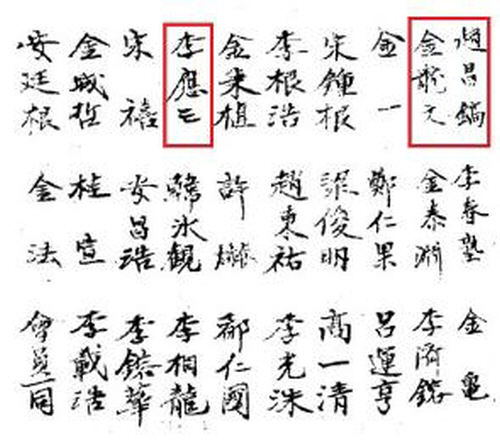 趙昌鎬
金龍文
金一
宋鍾根
李根浩
金東植
李應三
宋禧
金成哲
安廷根
李春塾
金泰淵
鄭仁果
張俊明
趙東祐
許
韓永観
安昌浩
桂宣
金法
金龜
李濟
呂運亨
高一清
李光洙
仁國
李相龍
李華
李載浩
會員一同